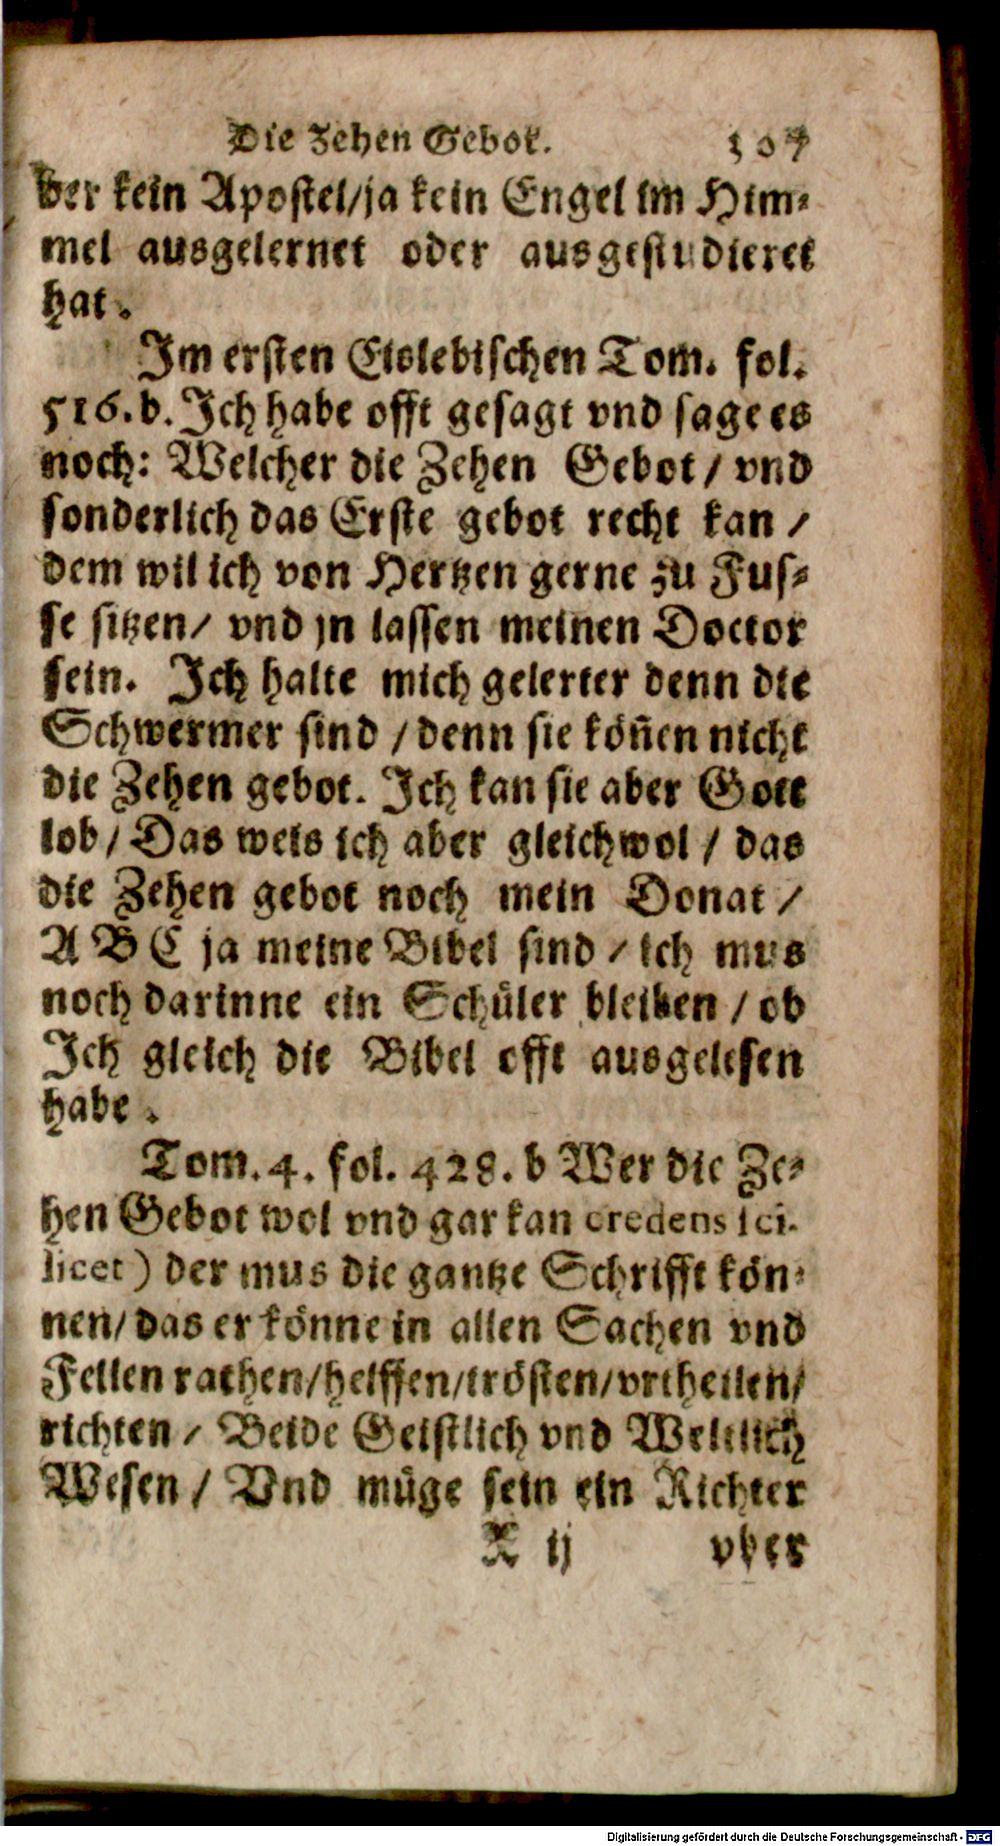 Die Zehen Gebot. 107
ber kein Apostel/ja kein Engel im Him⸗
mel ausgelernet oder ausgestudieret
hat.
Im ersten Eislebischen Tom. fol.
516. b. Ich habe offt gesagt vnd sage es
noch: Welcher die Zehen Gebot / vnd
sonderlich das Erste gebot recht kan /
dem wil ich von Hertzen gerne zu Fus⸗
se sitzen/ vnd jn lassen meinen Doctor
sein. Ich halte mich gelerter denn die
Schwermer sind / denn sie köñen nicht
die Zehen gebot. Ich kan sie aber Gott
lob/ Das weis ich aber gleichwol / das
die Zehen gebot noch mein Donat /
A B C ja meine Bibel sind / ich mus
noch darinne ein Schüler bleiben / ob
Ich gleich die Bibel offt ausgelesen
habe.
Tom. 4. fol. 428. b Wer die Ze⸗
hen Gebot wol vnd gar kan credens sci-
licet) der mus die gantze Schrifft kön⸗
nen/ das er könne in allen Sachen vnd
Fellen rathen/helffen/trösten/vrtheilen/
richten / Beide Geistlich vnd Weltlich
Wesen / Vnd müge sein ein Richter
X ij vber
Digitalisierung gefördert durch die Deutsche Forschungsgemeinschaft - DFG